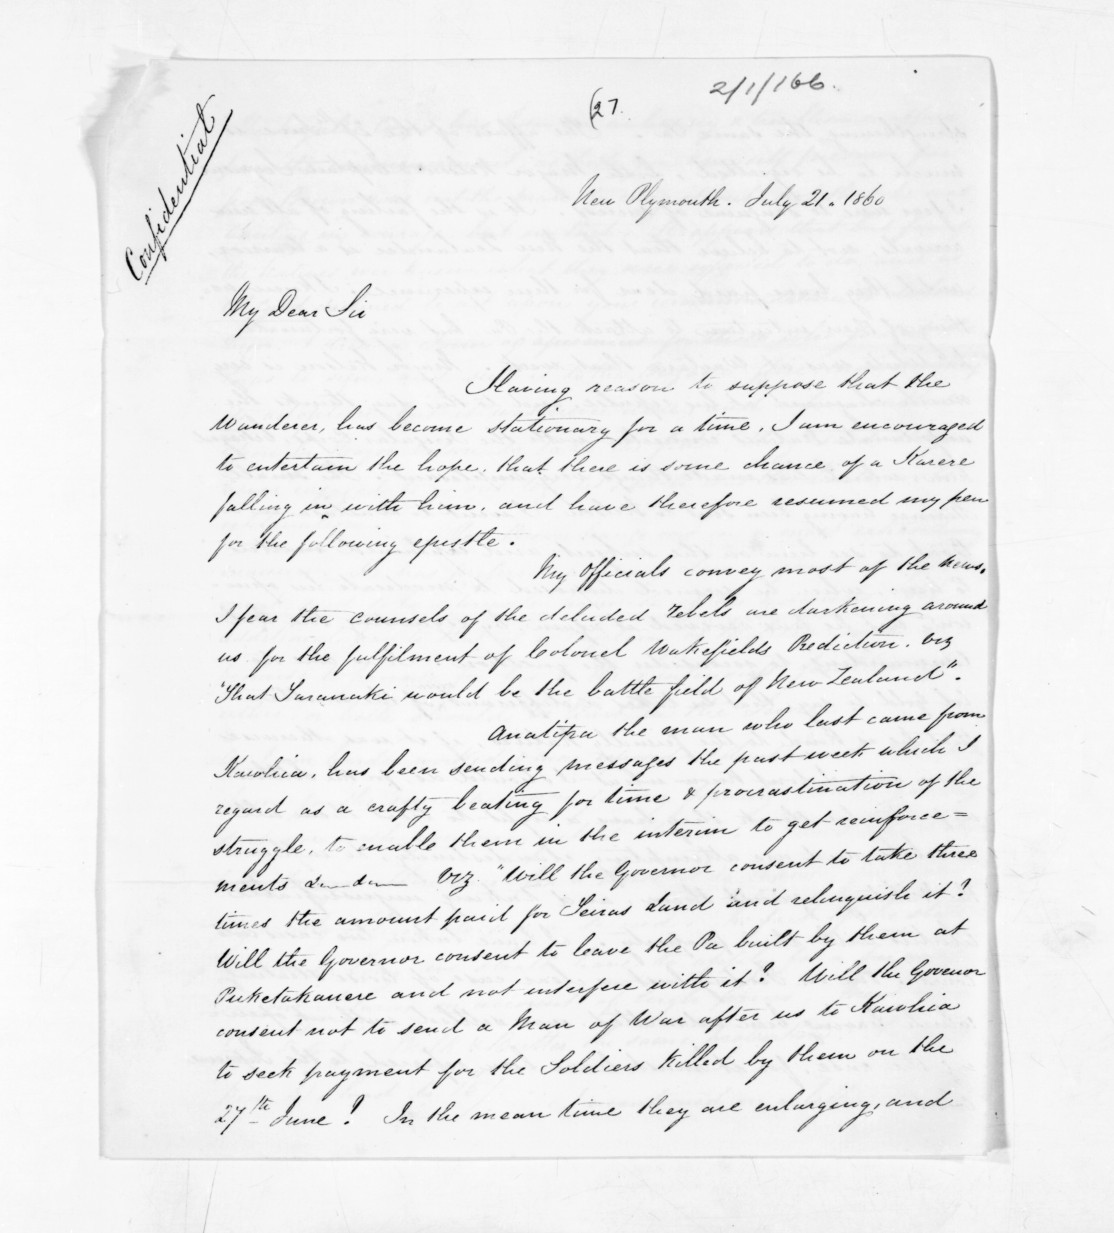 2/1/166.
(27.
Confidential
New Plymouth. July 21. 1860
My Dear Sir
Having reason to suppose that the
Wanderer, has become stationary for a time, I am encouraged
to entertain the hope, that there is some chance of a Karere
falling in with him, and have therefore resumed my pen
for the following epistle.
My Officials convey most of the news.
I fear the counsels of the deluded rebels are darkening around
us for the fulfilment of Colonel Wakefields Prediction. viz
"That Taranaki would be the battle field of New Zealand".
Anatipa the man who last came from
Kawhia, has been sending messages the past week which I
regard as a crafty beating for time & procrastination of the
struggle, to enable them in the interim to get reinforce=
ments Do Do viz. "Will the Governor consent to take three
times the amount paid for Teiras Land and relinquish it?
Will the Governor consent to leave the Pa built by them at
Puketakauere and not interfere with it? Will the Govenor
consent not to send a Man of War after us to Kawhia
to seek payment for the Soldiers killed by them on the
27th June? In the mean time they are enlarging, and